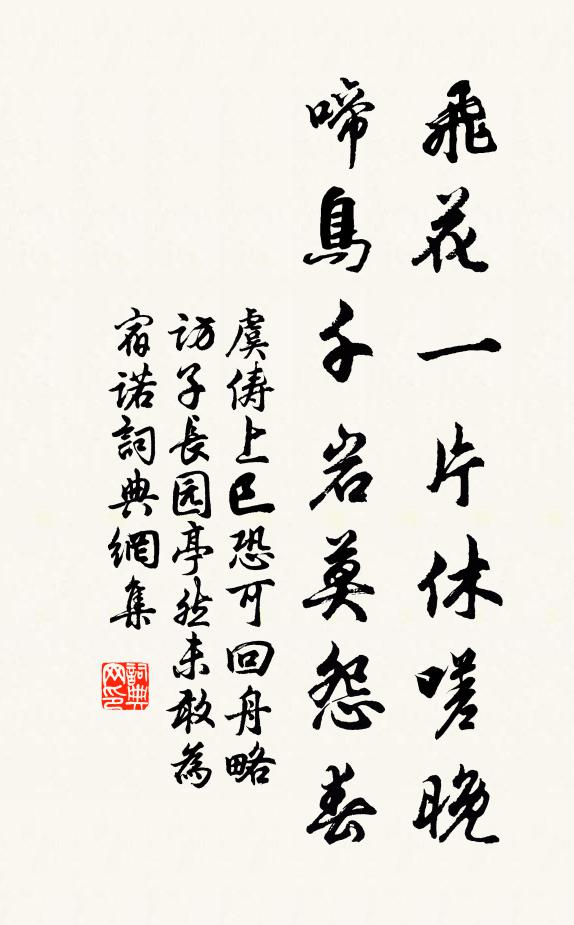 飛花一片休嗟晚
啼鳥千岩莫怨春
虞儔上巳恐可回舟略
訪子長园亭然未敢為
宿诺詞典網集
詞典网印